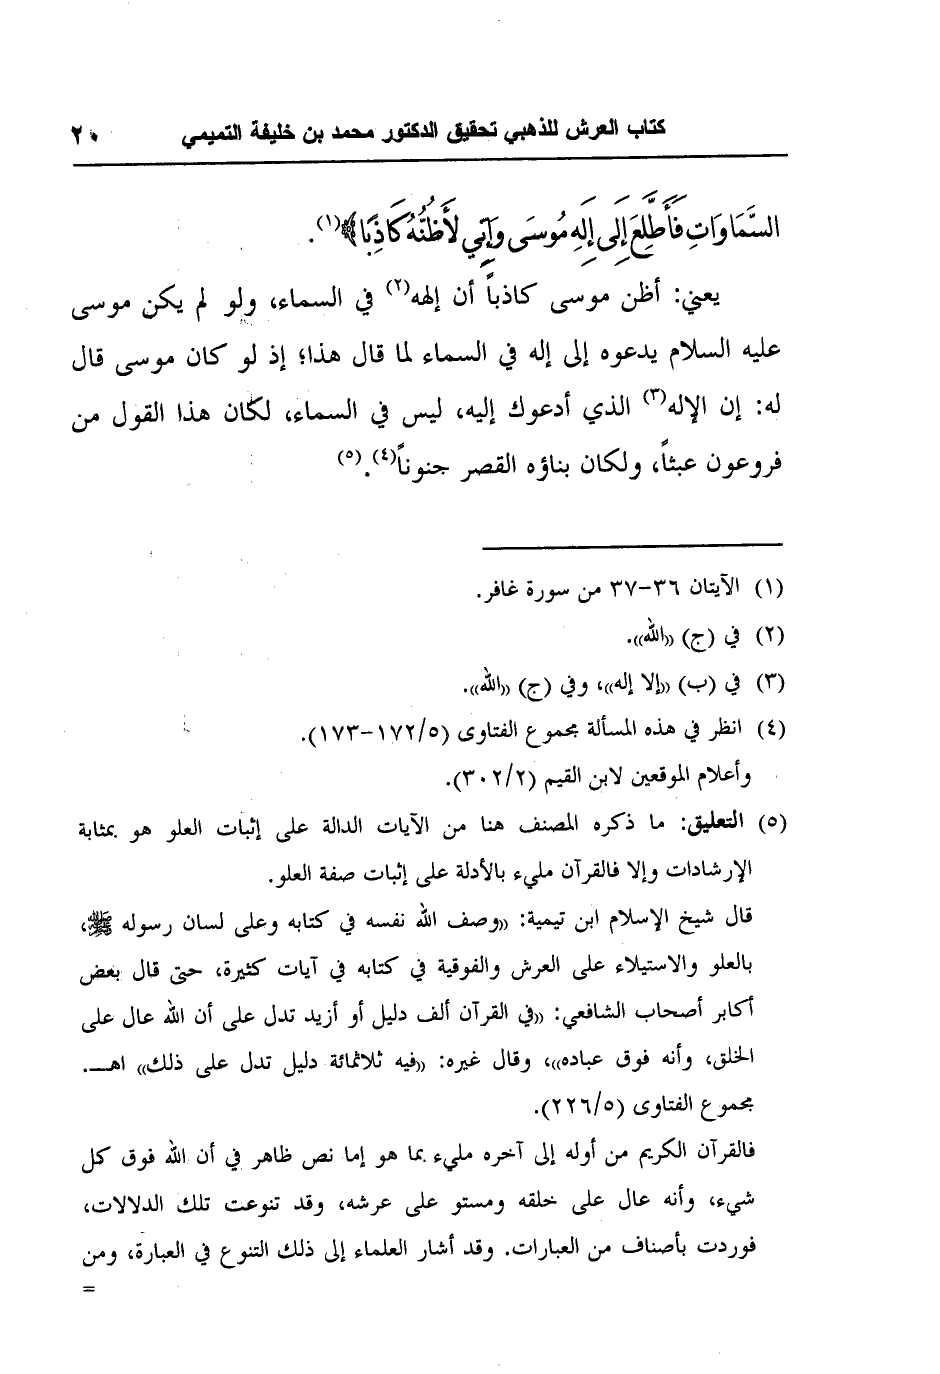 كتاب العرش للذهبي تحقيق الدكتور محمد بن خليفة التميمي ٢٠
السَّمَاوَاتِ فَأَطَّلِعَ إِلَى إِلَهِ مُوسَى وَإِنِّي لَأَظُنُّهُ كَاذِبًا﴾(١).
يعني: أظن موسى كاذباً أن إلهه(٢) في السماء، ولو لم يكن موسى
عليه السلام يدعوه إلى إله في السماء لما قال هذا؛ إذ لو كان موسى قال
له: إن الإله(٣) الذي أدعوك إليه، ليس في السماء، لكان هذا القول من
فروعون عبثاً، ولكان بناؤه القصر جنوناً(٤).(٥)
(١) الآيتان ٣٦-٣٧ من سورة غافر.
(٢) في (ج) «الله».
(٣) في (ب) «إلا إله»، وفي (ج) «الله».
(٤) انظر في هذه المسألة مجموع الفتاوى (١٧٢/٥-١٧٣).
وأعلام الموقعين لابن القيم (٣٠٢/٢).
(٥) التعليق: ما ذكره المصنف هنا من الآيات الدالة على إثبات العلو هو بمثابة
الإرشادات وإلا فالقرآن مليء بالأدلة على إثبات صفة العلو.
قال شيخ الإسلام ابن تيمية: «وصف الله نفسه في كتابه وعلى لسان رسوله ﷺ،
بالعلو والاستيلاء على العرش والفوقية في كتابه في آيات كثيرة، حتى قال بعض
أكابر أصحاب الشافعي: «في القرآن ألف دليل أو أزيد تدل على أن الله عال على
الخلق، وأنه فوق عباده»، وقال غيره: «فيه ثلاثمائة دليل تدل على ذلك» اهـ.
مجموع الفتاوى (٢٢٦/٥).
فالقرآن الكريم من أوله إلى آخره مليء بما هو إما نص ظاهر في أن الله فوق كل
شيء، وأنه عال على خلقه ومستو على عرشه، وقد تنوعت تلك الدلالات،
فوردت بأصناف من العبارات. وقد أشار العلماء إلى ذلك التنوع في العبارة، ومن
=